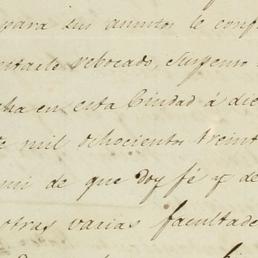 para sus asuntos le conf
rebocado, suspenso
cha en esta Ciudad á die
e mil ochocientos treint
mi de que doy fé y de
otras varias facultade